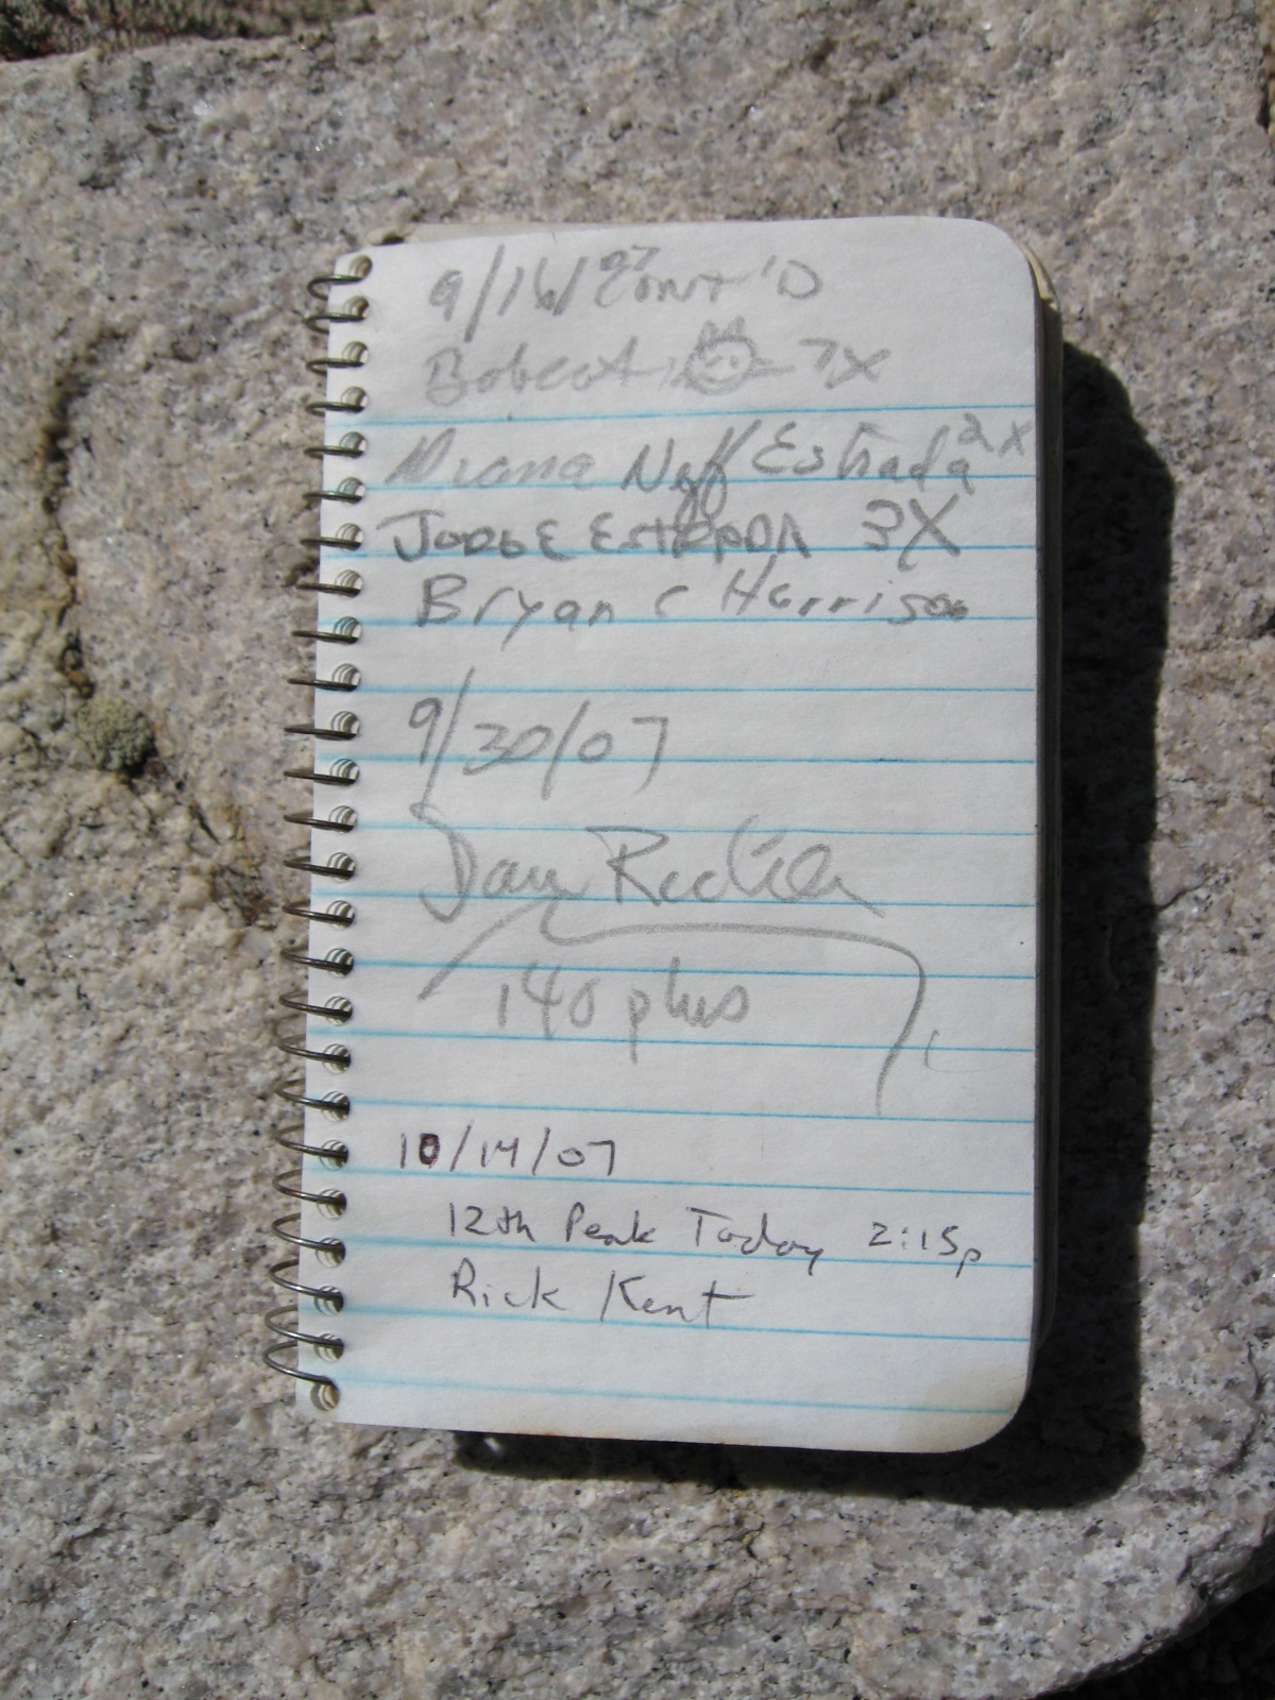 9/16/07 CONT'D
Bobcat 7X
Neff Estrada 2X
JORGE ESTRADA 3X
Bryan C Harrison
9/30/07
140 plus
10/14/07
12th Peak Today 2:15p
Rick Kent